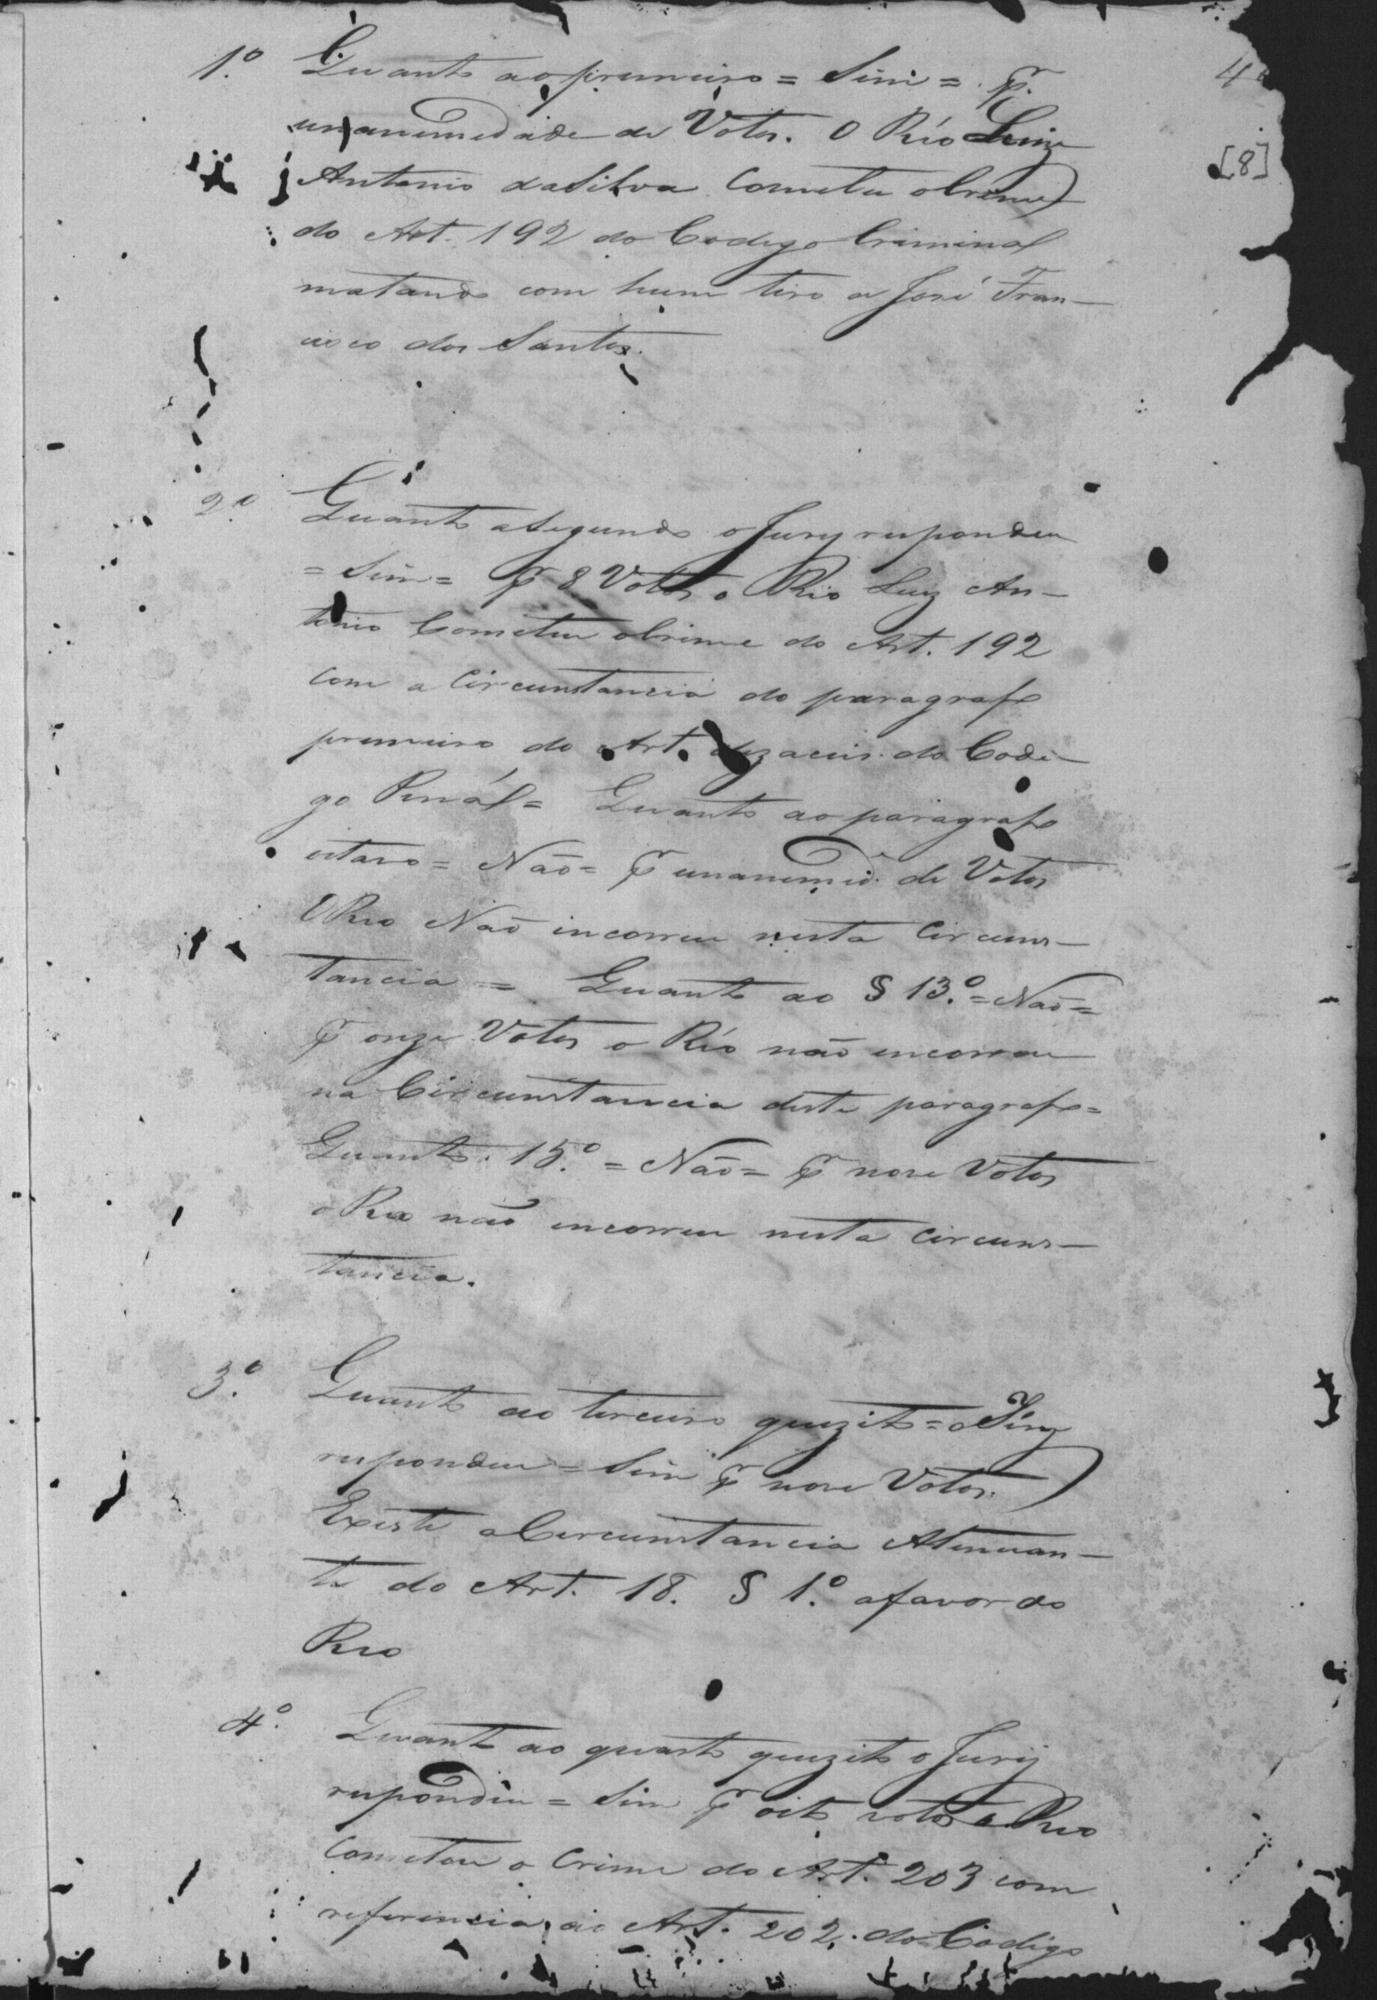 1º. Quanto ao primeiro = Sim = pr.
unanemedade de Votos. O Réo Luiz
Antonio da Silva Cometeu o Crime
do Art. 192 do Codigo Criminal
matando com hum tiro a José Fran-
cisco dos Santos.
4
[8]
2º. Quanto a Segundo o Jury respondeu
= Sim = pr 8 Votos o Réo Luiz An-
tonio Cometeu o Crime do Art. 192
com a Circunstancia do paragrafo
premeiro do Art. dezaceis do Codi-
go Penál = Quanto ao paragrafo
oitavo = Não = pr unanemid.e de Votos
O Reo Não incorreu nesta Circuns-
tancia = Quanto ao § 13.º = Não =
pr onze Votos o Réo não encorreu
na Circunstancia deste paragrafo =
Quanto. 15.º = Não = pr nove Votos
o Reo não encorreu nesta Circuns-
tancia.
3º. Quanto ao terceiro quezito = o Júry
respondeu = Sim pr nove Votos.
Existe a Circunstancia Atenuan-
te do Art. 18. § 1.º a favor do
Reo
4º. Quanto ao quarto quezito o Jury
respondeu = Sim pr oito votos o Reo
Cometeu o Crime do Art. 203 com
referencia ao Art. 202. do Codigo